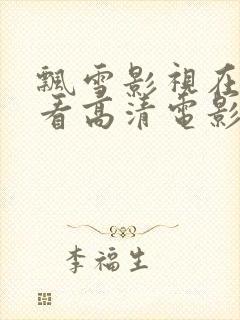 飄雪影視在
看高清電影
李福生